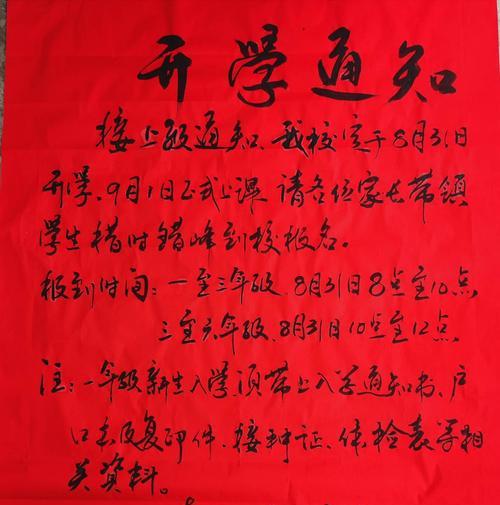 开学通知
接上级通知、我校定于8月31日
开学、9月1日正式上课、请各位家长带领
学生错时错峰到校报名。
报到时间：一至三年级、8月31日8点至10点
三至六年级、8月31日10点至12点
注：一年级新生入学须带上入学通知书、户
口本及复印件、接种证、体检表等相
关资料。